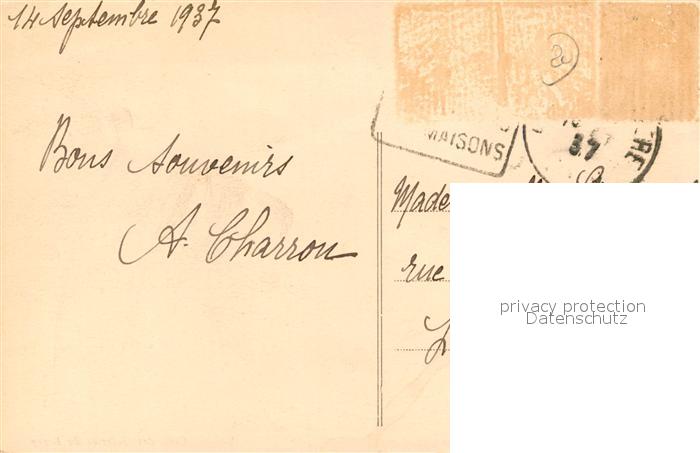 14 septembre 1937
20
MAISONS
37
Bons souvenirs
A. Charron
rue
privacy protection
Datenschutz